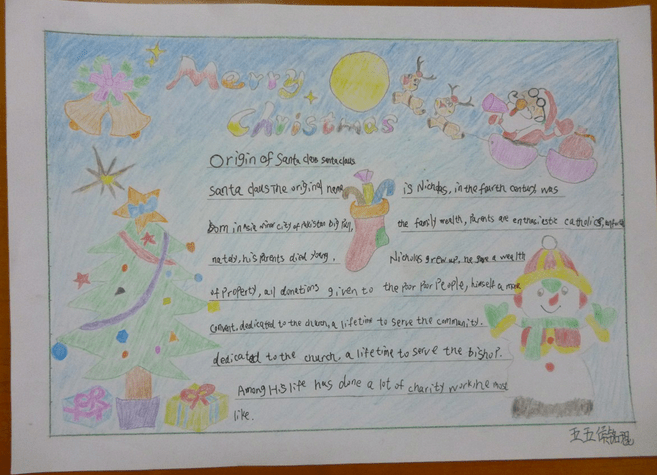 Merry
Christmas
Origin of Santa claus santa claus
santa claus The original name is Nicholas, in the fourth century was
Born in asia minor city of the family wealth, parents are enthusiastic catholics,
nately, his parents died young. Nicholas grew up, he gave a wealth
of property, all donations given to the poor poor People, himself a more
Convent. dedicated to the church, a lifetime to serve the community.
dedicated to the church, a lifetime to serve the bishop.
Among His life has done a lot of charity work, he most
like.
五五